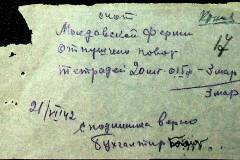 счот
Молдавской Ферми
отпущено повох
тетрадей 20шт-015к-3мар
3мар
21/VII42
с подлинна верно
Бухгалтир
17